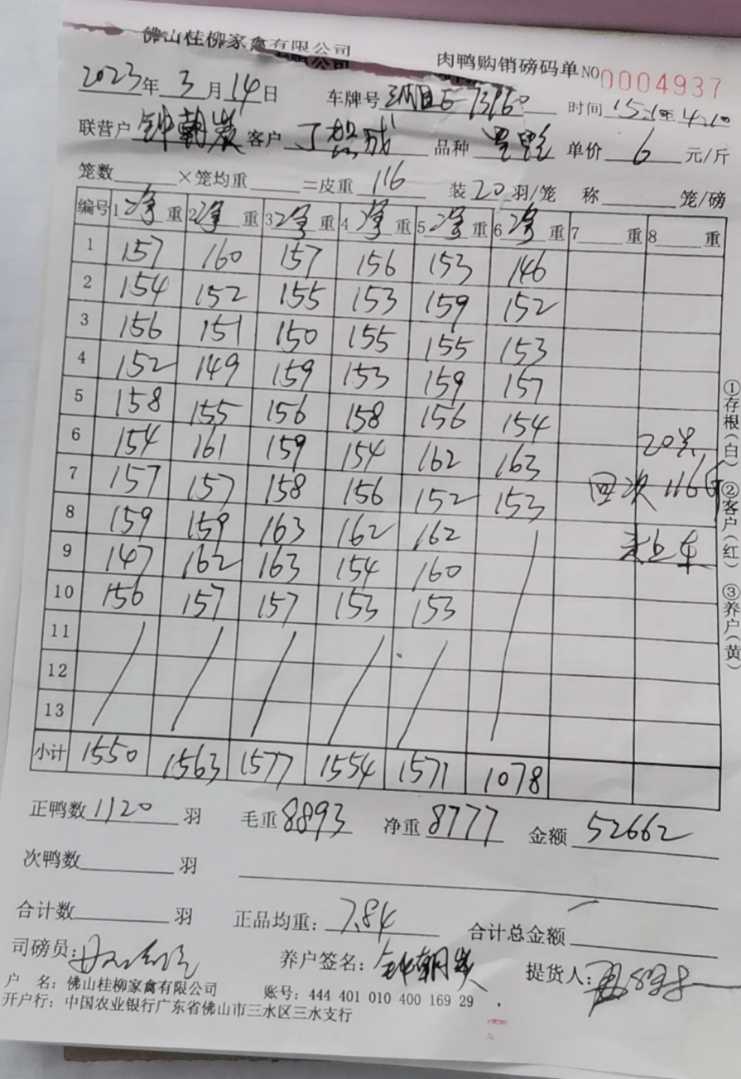 佛山桂柳家禽有限公司
肉鸭购销磅码单 NO 0004937
2023年3月14日 车牌号 时间
联营户 钟朝炭 客户 丁 成 品种 单价 6 元/斤
笼数 ×笼均重 =皮重 116 装20羽/笼 称 笼/磅
编号 1 净重 2 净重 3 净重 4 净重 5 净重 6 净重 7 重 8 重
1 157 160 157 156 153 146
2 154 152 155 153 159 152
3 156 151 150 155 155 153
4 152 149 159 153 159 157
5 158 155 156 158 156 154
6 154 161 159 154 162 163
7 157 157 158 156 152 153
8 159 159 163 162 162
9 147 162 163 154 160
10 156 157 157 153 153
11
12
13
小计 1550 1563 1577 1554 1571 1078
四次 116
①存根(白) ②客户(红) ③养户(黄)
正鸭数 1120 羽 毛重 8893 净重 8777 金额 52662
次鸭数 羽
合计数 羽 正品均重: 7.84 合计总金额
司磅员: 养户签名: 钟朝炭 提货人:
户 名: 佛山桂柳家禽有限公司 账号: 444 401 010 400 169 29
开户行: 中国农业银行广东省佛山市三水区三水支行